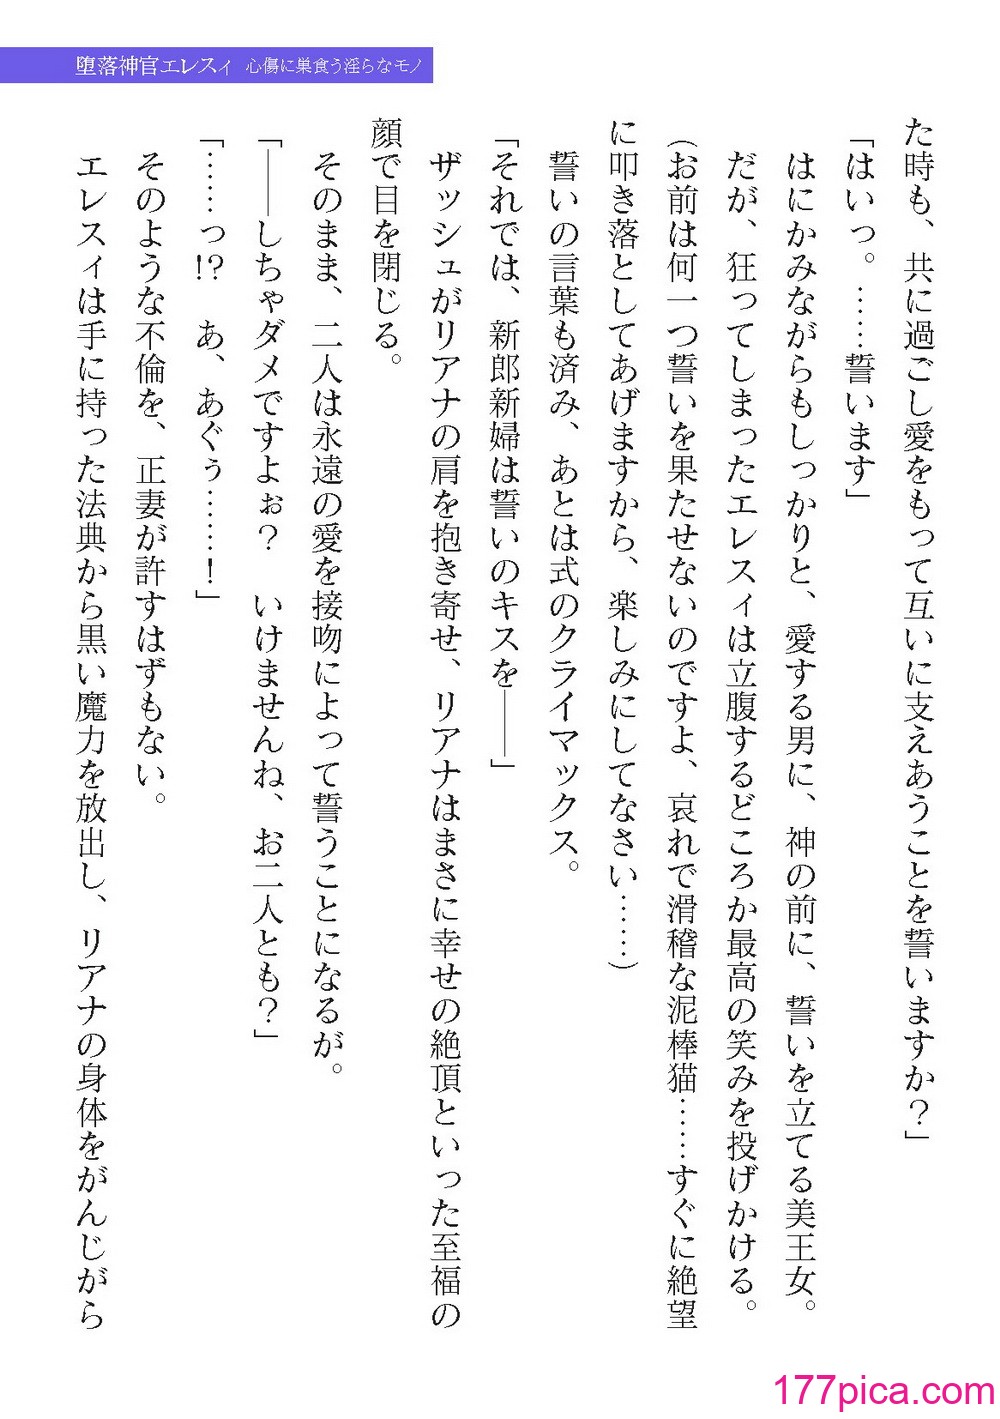 堕落神官エレスィ 心傷に巣食う淫らなモノ
た時も、共に過ごし愛をもって互いに支えあうことを誓いますか？」
「はいっ。……誓います」
はにかみながらもしっかりと、愛する男に、神の前に、誓いを立てる美王女。
だが、狂ってしまったエレスィは立腹するどころか最高の笑みを投げかける。
（お前は何一つ誓いを果たせないのですよ、哀れで滑稽な泥棒猫……すぐに絶望
に叩き落としてあげますから、楽しみにしてなさい……）
誓いの言葉も済み、あとは式のクライマックス。
「それでは、新郎新婦は誓いのキスを――」
ザッシュがリアナの肩を抱き寄せ、リアナはまさに幸せの絶頂といった至福の
顔で目を閉じる。
そのまま、二人は永遠の愛を接吻によって誓うことになるが。
「――しちゃダメですよぉ？　いけませんね、お二人とも？」
「……っ!?　あ、あぐぅ……！」
そのような不倫を、正妻が許すはずもない。
エレスィは手に持った法典から黒い魔力を放出し、リアナの身体をがんじがら
177pica.com